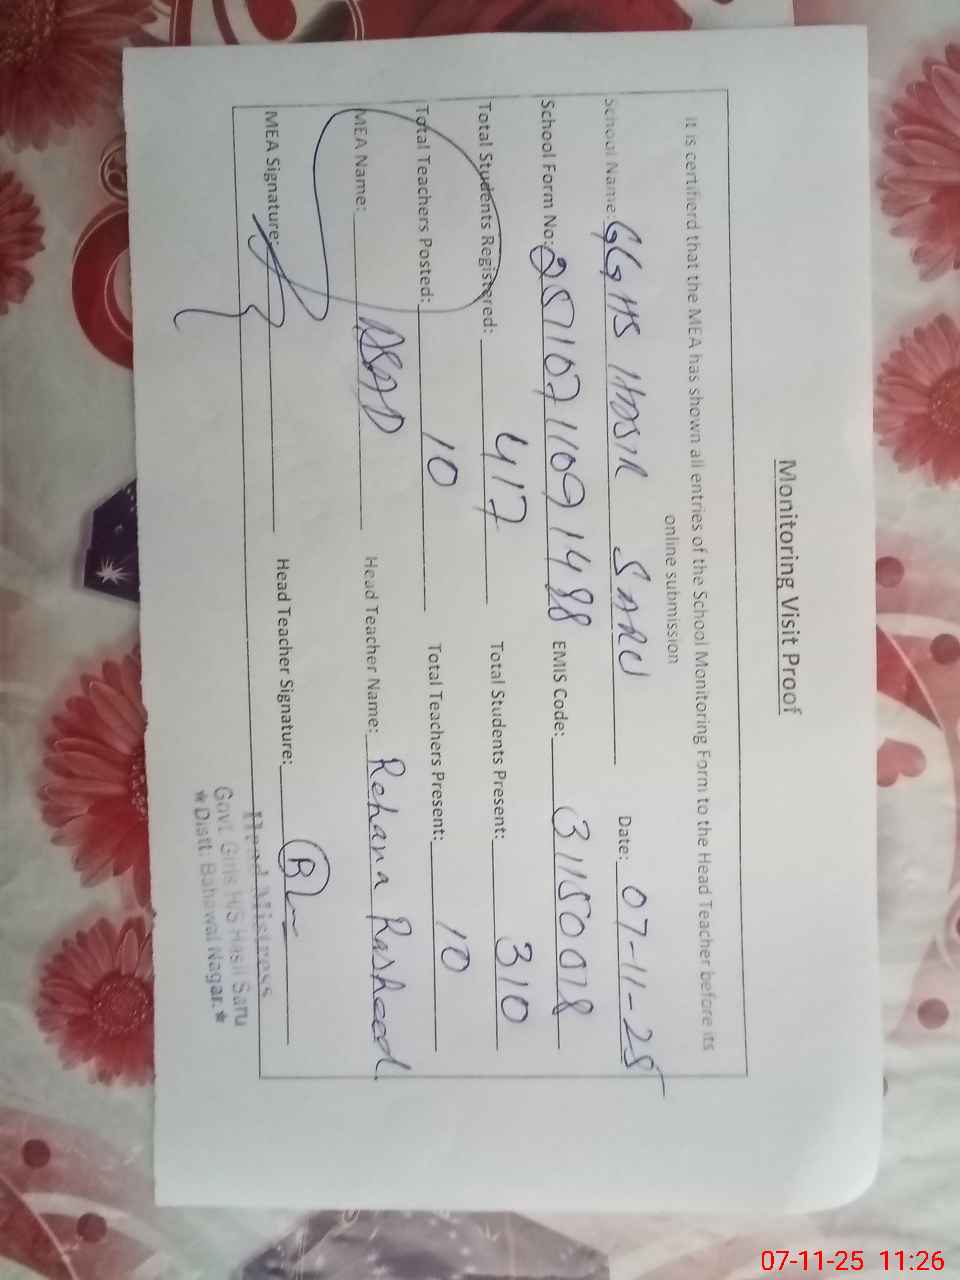 Monitoring Visit Proof
It is certifierd that the MEA has shown all entries of the School Monitoring Form to the Head Teacher before its
online submission
School Name: GGHS HASIL SARU Date: 07-11-25
School Form No: 25110711091488 EMIS Code: 31150018
Total Students Registered: 417 Total Students Present: 310
Total Teachers Posted: 10 Total Teachers Present: 10
MEA Name: ASAD Head Teacher Name: Rehana Rasheed
MEA Signature: Head Teacher Signature:
Head Mistress
Govt. Girls H/S Hasil Saru
★Distt: Bahawal Nagar.★
07-11-25 11:26